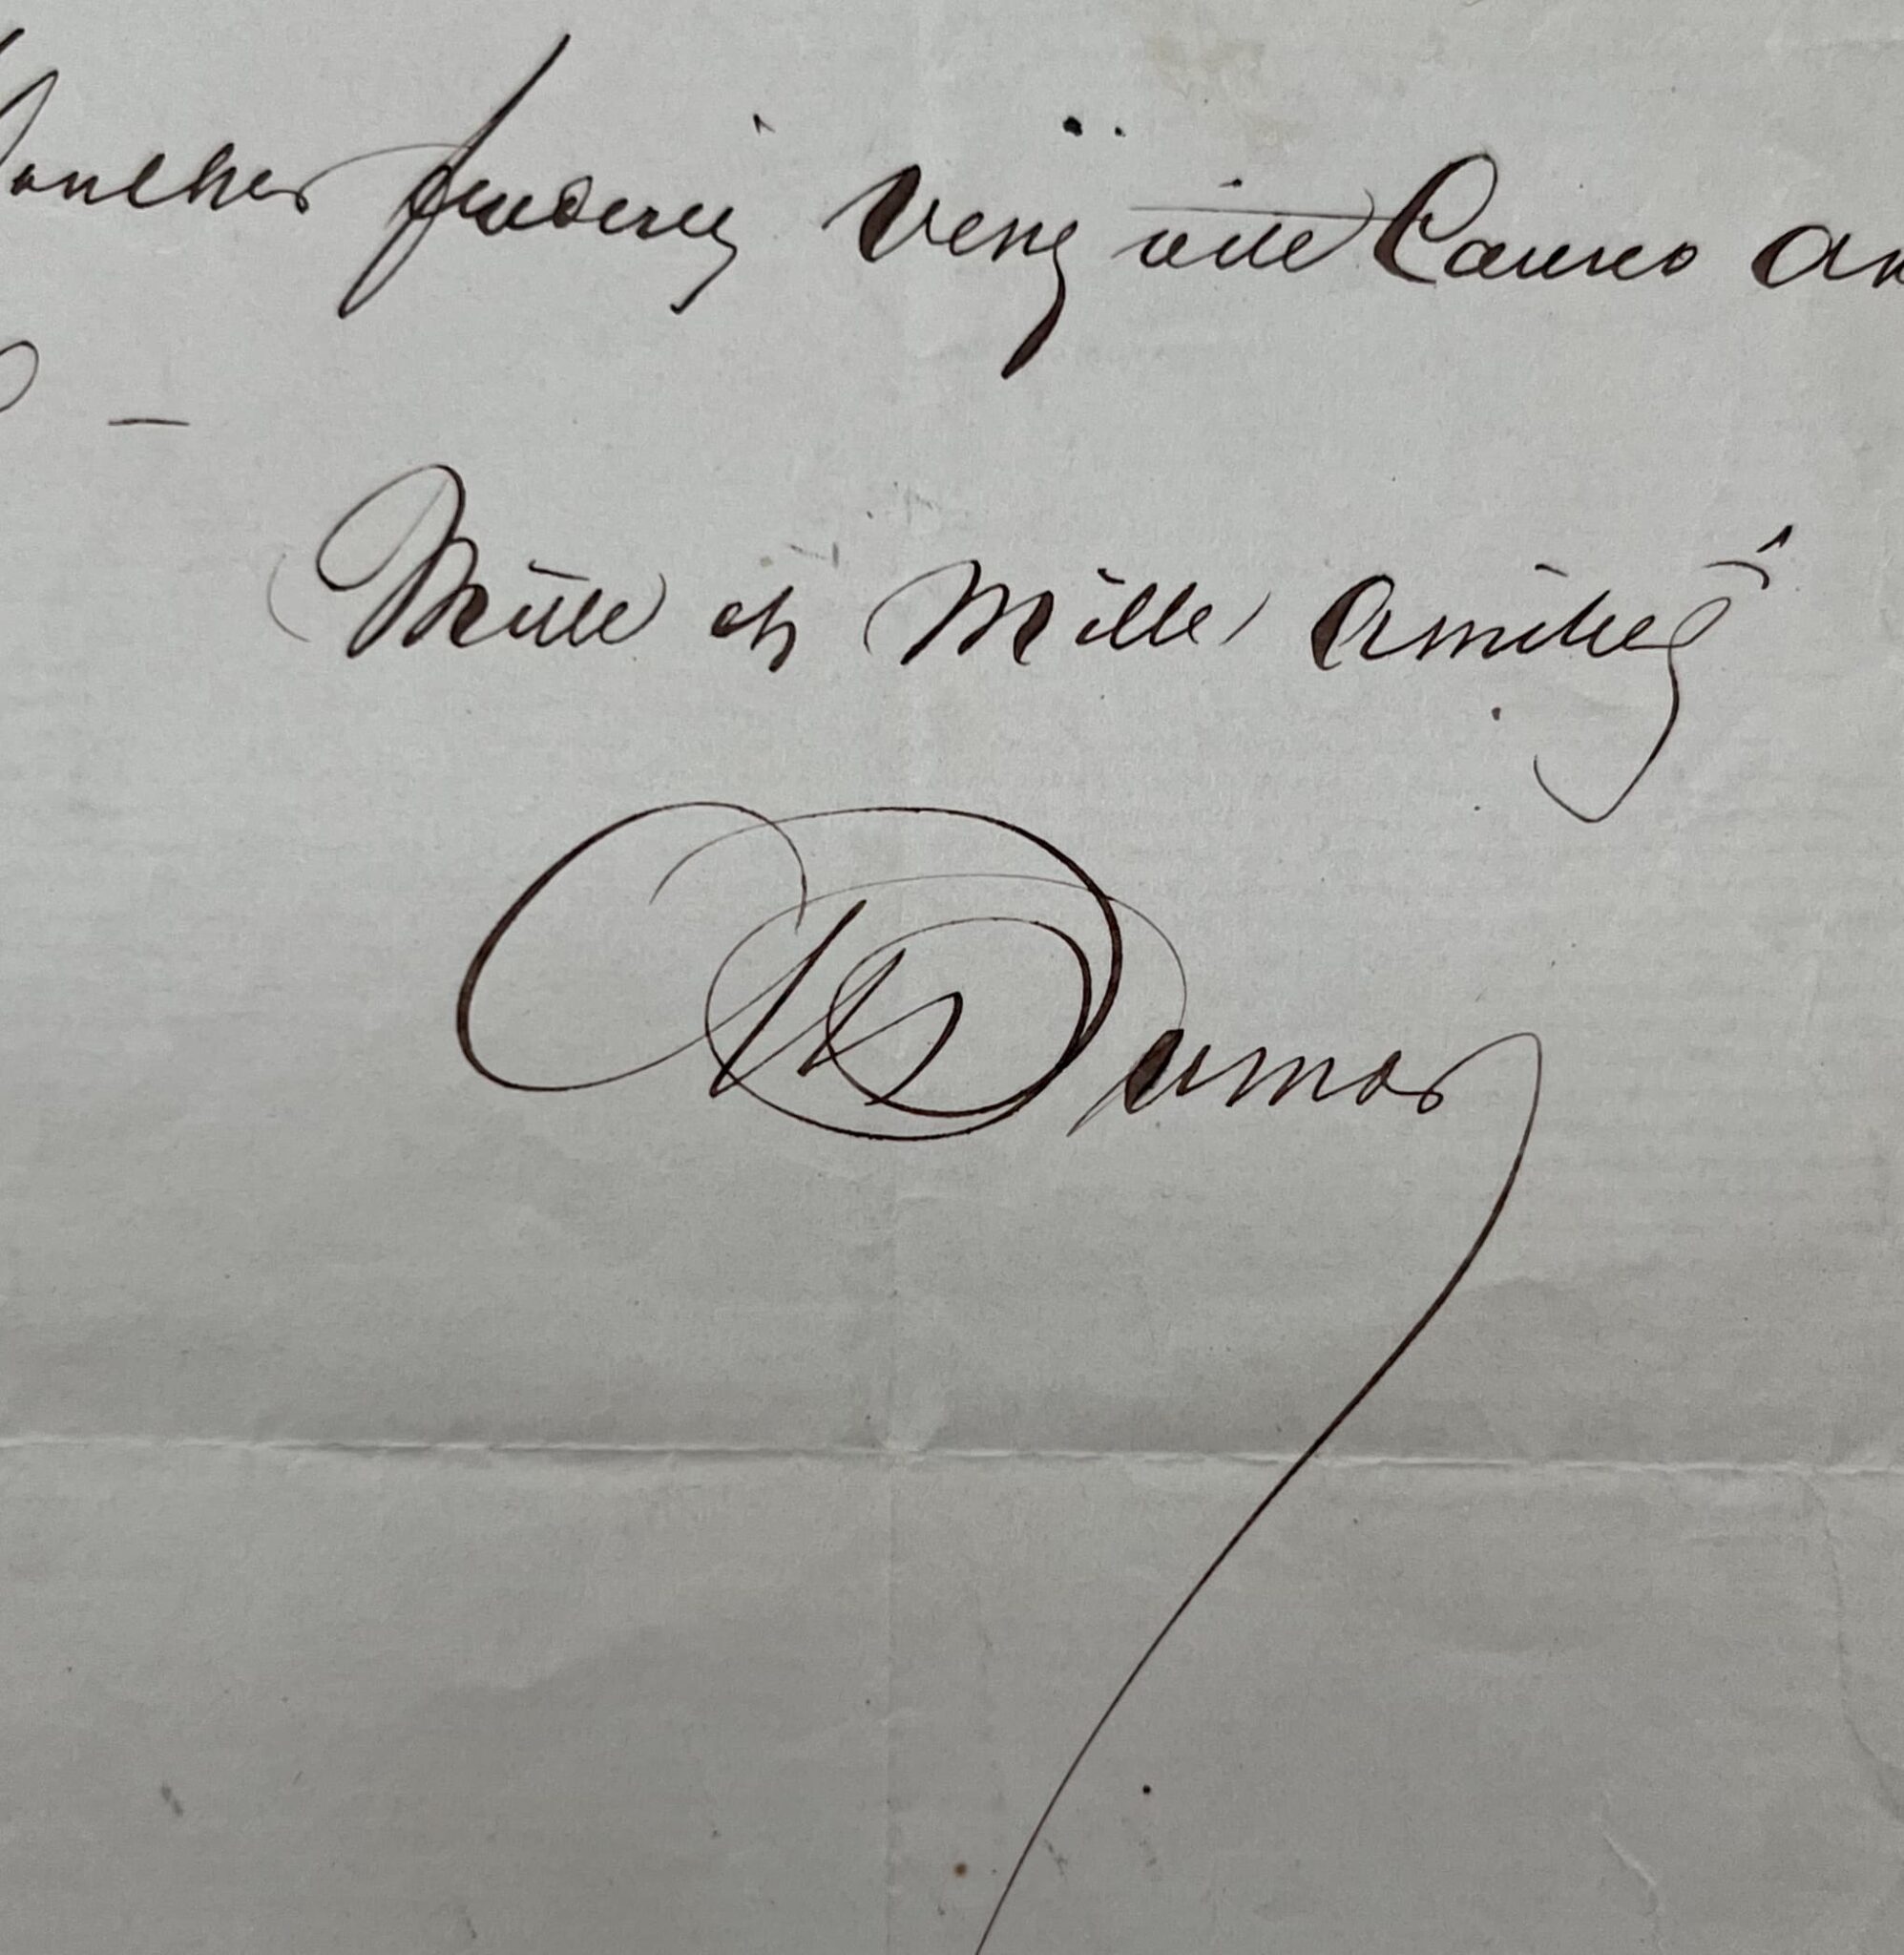 Frederic Venez vite Causer
Mille et Mille Amitiés
ADumas